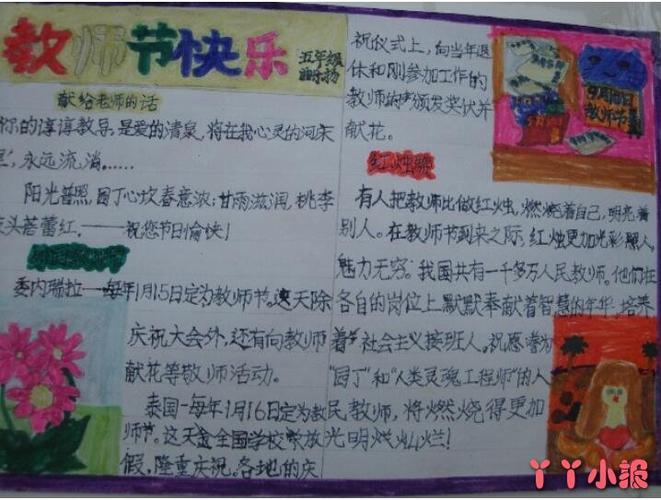 教师节快乐
五年级
献给老师的话
你的谆谆教导,是爱的清泉,将在我心灵的河床
里,永远流淌……
阳光普照,园丁心坎春意浓;甘雨滋润,桃李
枝头蓓蕾红。——祝您节日愉快!
委内瑞拉—每年1月15日定为教师节。这天除
庆祝大会外,还有向教师
献花等敬师活动。
泰国—每年1月16日定为教
师节。这天全国学校放
假,隆重庆祝。各地的庆
祝仪式上,向当年退
休和刚参加工作的
教师的颁发奖状并
献花。
9月10日
教师节
红烛
有人把教师比做红烛,燃烧着自己,明亮着
别人。在教师节到来之际,红烛更加光彩照人,
魅力无穷。我国共有一千多万人民教师。他们在
各自的岗位上默默奉献着智慧的年华,培养
着社会主义接班人。祝愿誉为
“园丁”和“人类灵魂工程师”的人
民教师,将燃烧得更加
光明灿烂!
丫丫小报